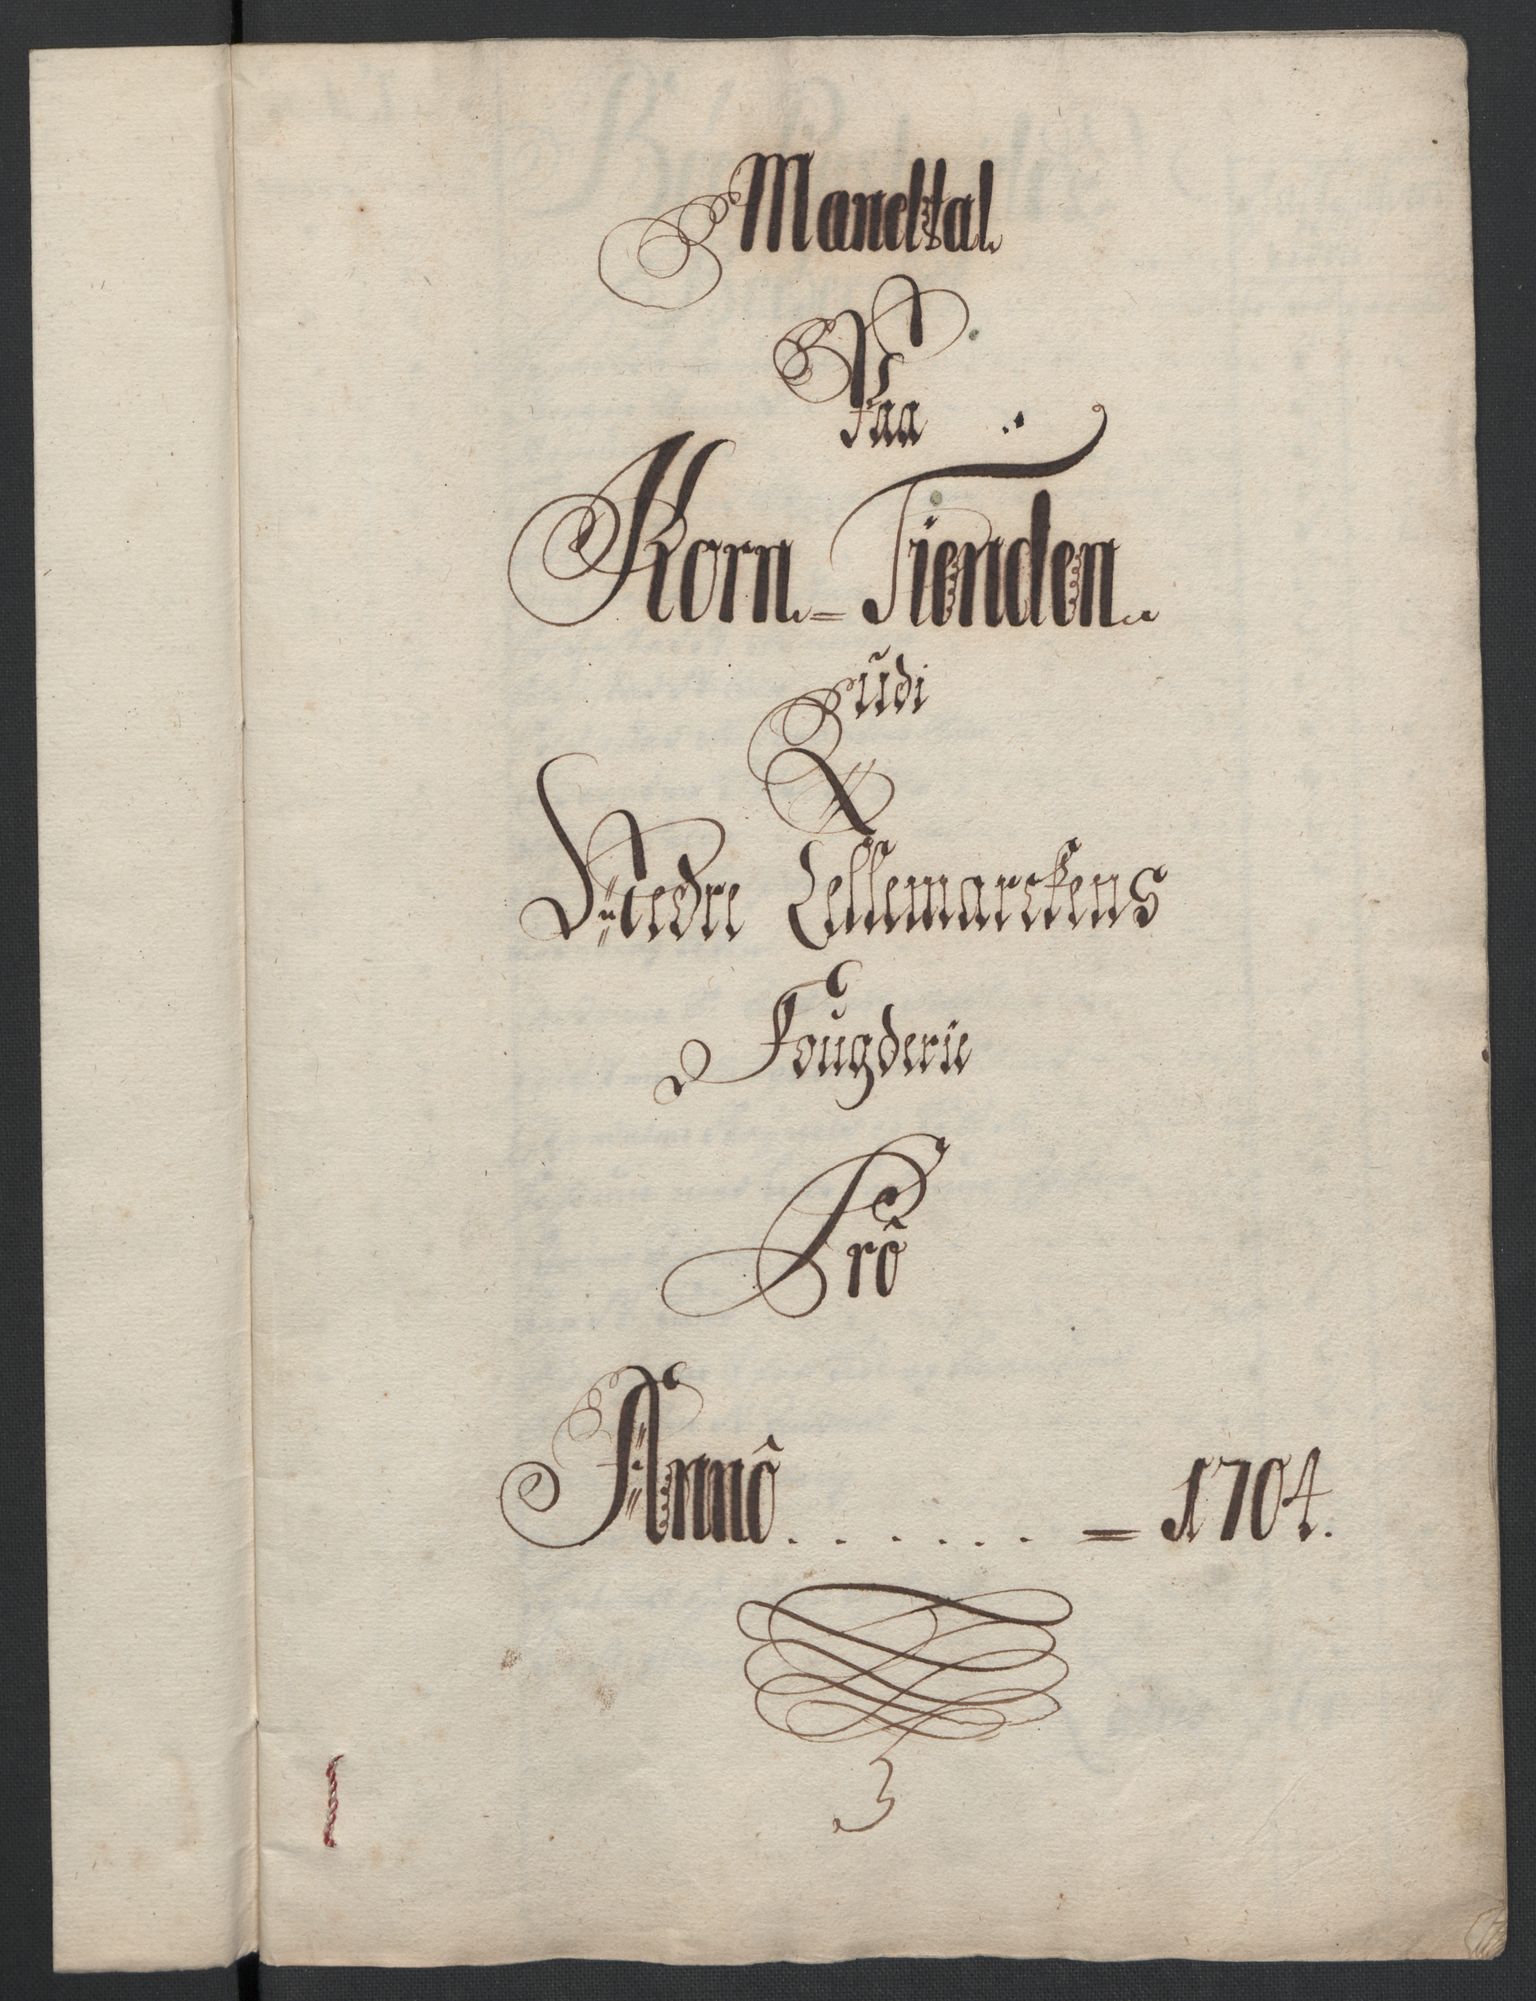 Mandtal
Paa
Korn = Tienden
udi
Nedre Tellemarckens
Fougderie
Prô
Annô . . . . . . = 1704.
3